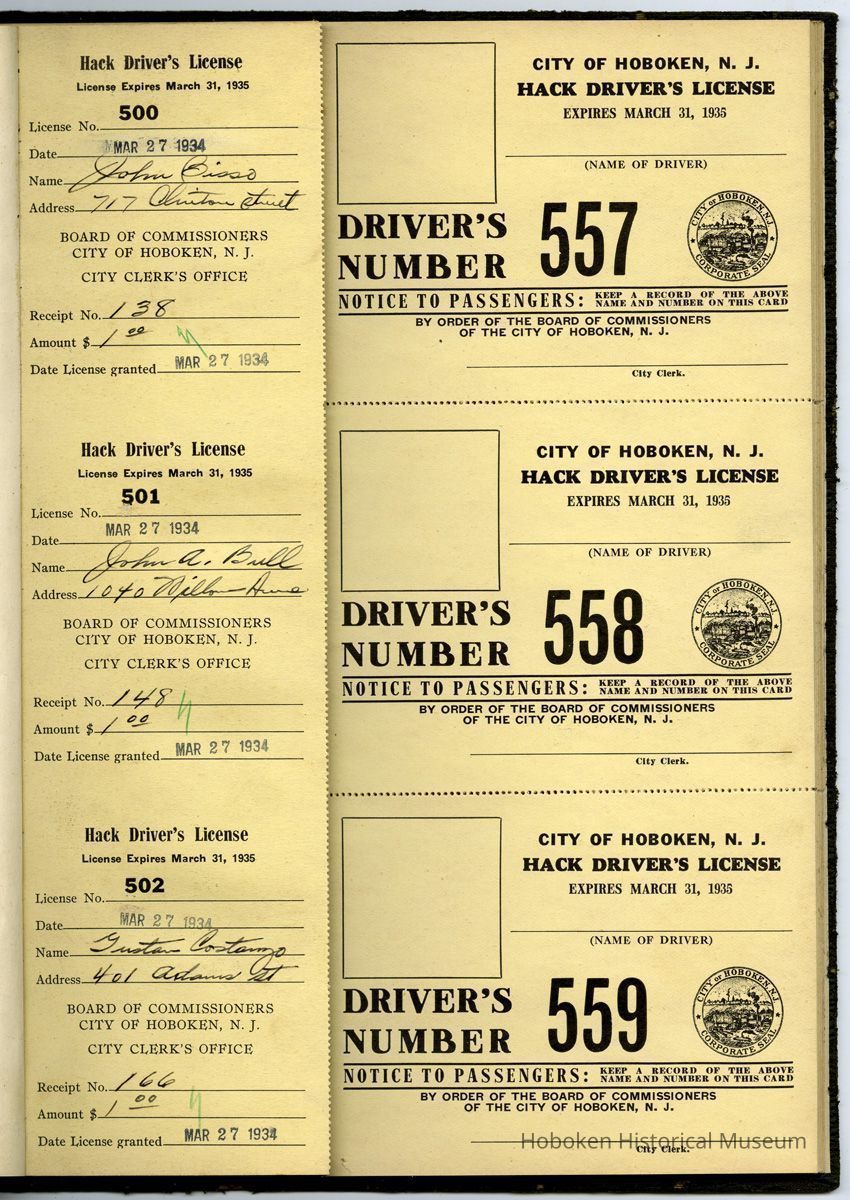 Hack Driver's License
License Expires March 31, 1935
500
License No.
Date MAR 27 1934
Name John Bisso
Address 717 Clinton Street
BOARD OF COMMISSIONERS
CITY OF HOBOKEN, N. J.
CITY CLERK'S OFFICE
Receipt No. 138
Amount $ 1 00
Date License granted MAR 27 1934
Hack Driver's License
License Expires March 31, 1935
501
License No.
MAR 27 1934
Date
Name John A. Bull
Address 1040 Willow Ave
BOARD OF COMMISSIONERS
CITY OF HOBOKEN, N. J.
CITY CLERK'S OFFICE
Receipt No. 148
Amount $ 1 00
Date License granted MAR 27 1934
Hack Driver's License
License Expires March 31, 1935
502
License No.
Date MAR 27 1934
Name Gustav Costanzo
Address 401 Adams St
BOARD OF COMMISSIONERS
CITY OF HOBOKEN, N. J.
CITY CLERK'S OFFICE
Receipt No. 166
Amount $ 1 00
Date License granted MAR 27 1934
CITY OF HOBOKEN, N. J.
HACK DRIVER'S LICENSE
EXPIRES MARCH 31, 1935
(NAME OF DRIVER)
DRIVER'S NUMBER 557
CITY OF HOBOKEN, N.J. CORPORATE SEAL
NOTICE TO PASSENGERS: KEEP A RECORD OF THE ABOVE
NAME AND NUMBER ON THIS CARD
BY ORDER OF THE BOARD OF COMMISSIONERS
OF THE CITY OF HOBOKEN, N. J.
City Clerk.
CITY OF HOBOKEN, N. J.
HACK DRIVER'S LICENSE
EXPIRES MARCH 31, 1935
(NAME OF DRIVER)
DRIVER'S NUMBER 558
CITY OF HOBOKEN, N.J. CORPORATE SEAL
NOTICE TO PASSENGERS: KEEP A RECORD OF THE ABOVE
NAME AND NUMBER ON THIS CARD
BY ORDER OF THE BOARD OF COMMISSIONERS
OF THE CITY OF HOBOKEN, N. J.
City Clerk.
CITY OF HOBOKEN, N. J.
HACK DRIVER'S LICENSE
EXPIRES MARCH 31, 1935
(NAME OF DRIVER)
DRIVER'S NUMBER 559
CITY OF HOBOKEN, N.J. CORPORATE SEAL
NOTICE TO PASSENGERS: KEEP A RECORD OF THE ABOVE
NAME AND NUMBER ON THIS CARD
BY ORDER OF THE BOARD OF COMMISSIONERS
OF THE CITY OF HOBOKEN, N. J.
City Clerk.
Hoboken Historical Museum